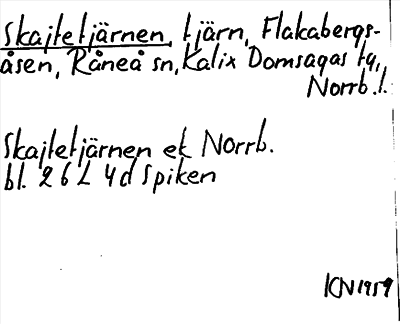 Skajtetjärnen, tjärn, Flakabergs-
åsen, Råneå sn, Kalix Domsagas tg,
Norrb. l.
Skajtetjärnen ek Norrb.
bl. 26 L 4d Spiken
KN 1959